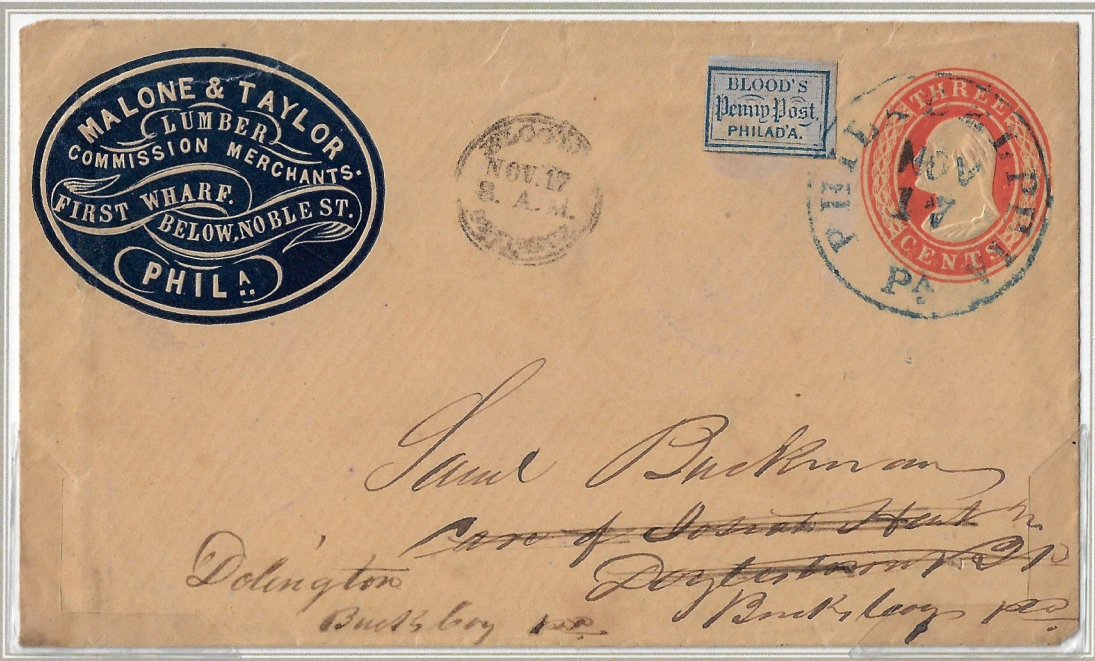 MALONE & TAYLOR
LUMBER
COMMISSION MERCHANTS.
FIRST WHARF.
BELOW, NOBLE ST.
PHILA.
NOV. 17
8. A.M.
BLOOD'S
Penny Post.
PHILAD'A.
THREE
CENTS
PHILADELPHIA
NOV
17
PA
Saml Buckman
Care of Josiah
Doylestown P O
Bucks Coy pa
Dolington
Bucks Coy pa